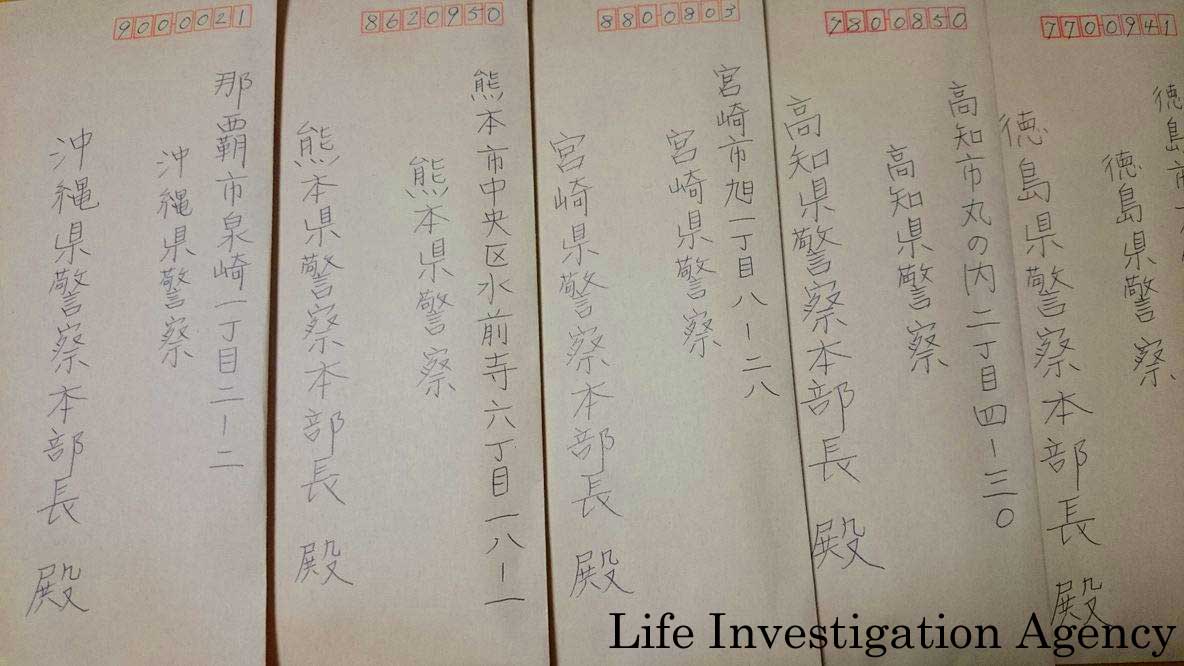 9000021
那覇市泉崎一丁目二ー二
沖縄県警察
沖縄県警察本部長 殿
8620950
熊本市中央区水前寺六丁目一八ー一
熊本県警察
熊本県警察本部長 殿
8800803
宮崎市旭一丁目八ー二八
宮崎県警察
宮崎県警察本部長 殿
7800850
高知市丸の内二丁目四ー三〇
高知県警察
高知県警察本部長 殿
7700941
徳島市
徳島県警察
徳島県警察本部長 殿
Life Investigation Agency